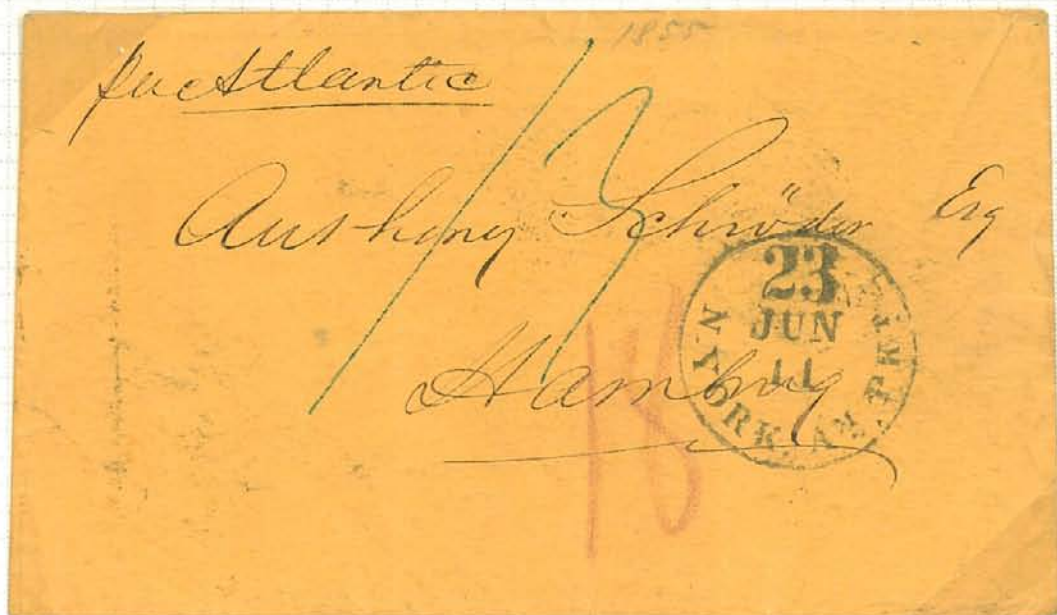 1855
per Atlantic
Anthony Schröder Esq
Hamburg
23
JUN
11
N. YORK AM. PKT.
18